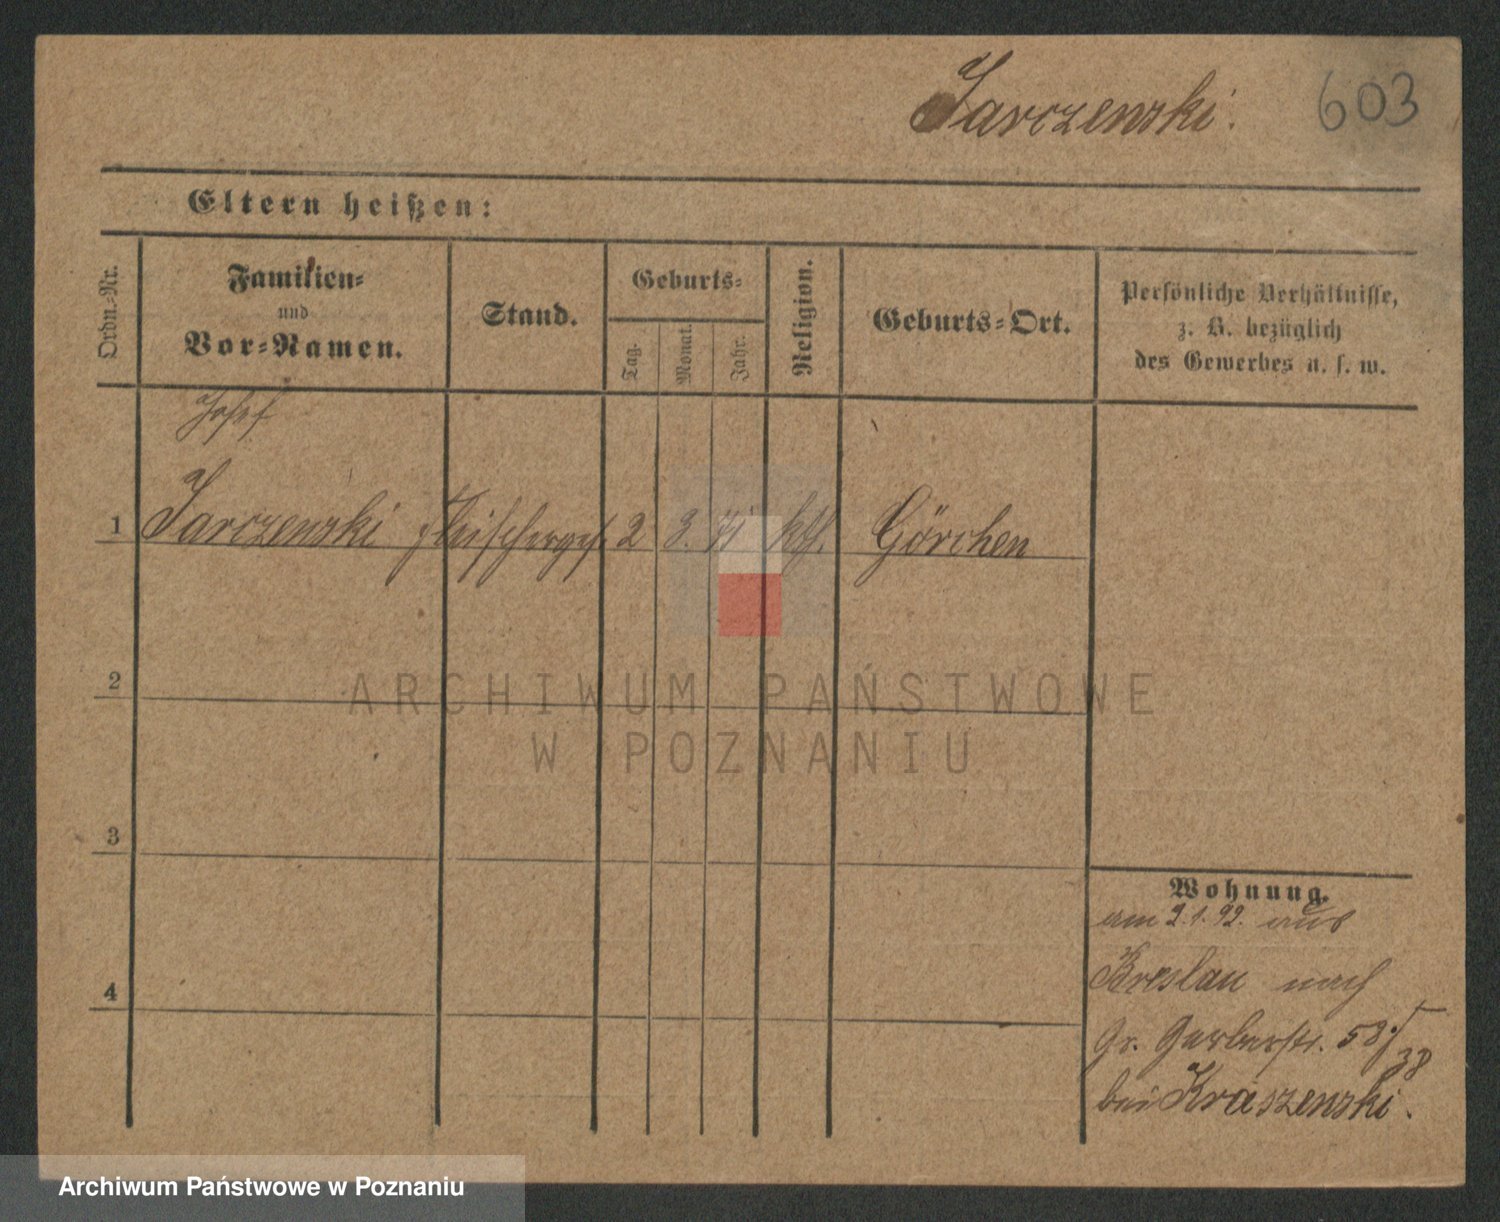 Jarczewski.
603
Eltern heißen:
Ordn.-Nr.
Familien-
und
Vor-Namen.
Stand.
Geburts-
Tag.
Monat.
Jahr.
Religion.
Geburts-Ort.
Persönliche Verhältnisse,
z. B. bezüglich
des Gewerbes u. s. w.
Josef
1 Jarczewski Fleischerges. 2 3. 71 kth. Görchen
2
3
4
Wohnung.
am 2.1.92. aus
Breslau nach
Gr. Gerberstr. 52
38
bei Kraszewski.
ARCHIWUM PAŃSTWOWE
W POZNANIU
Archiwum Państwowe w Poznaniu